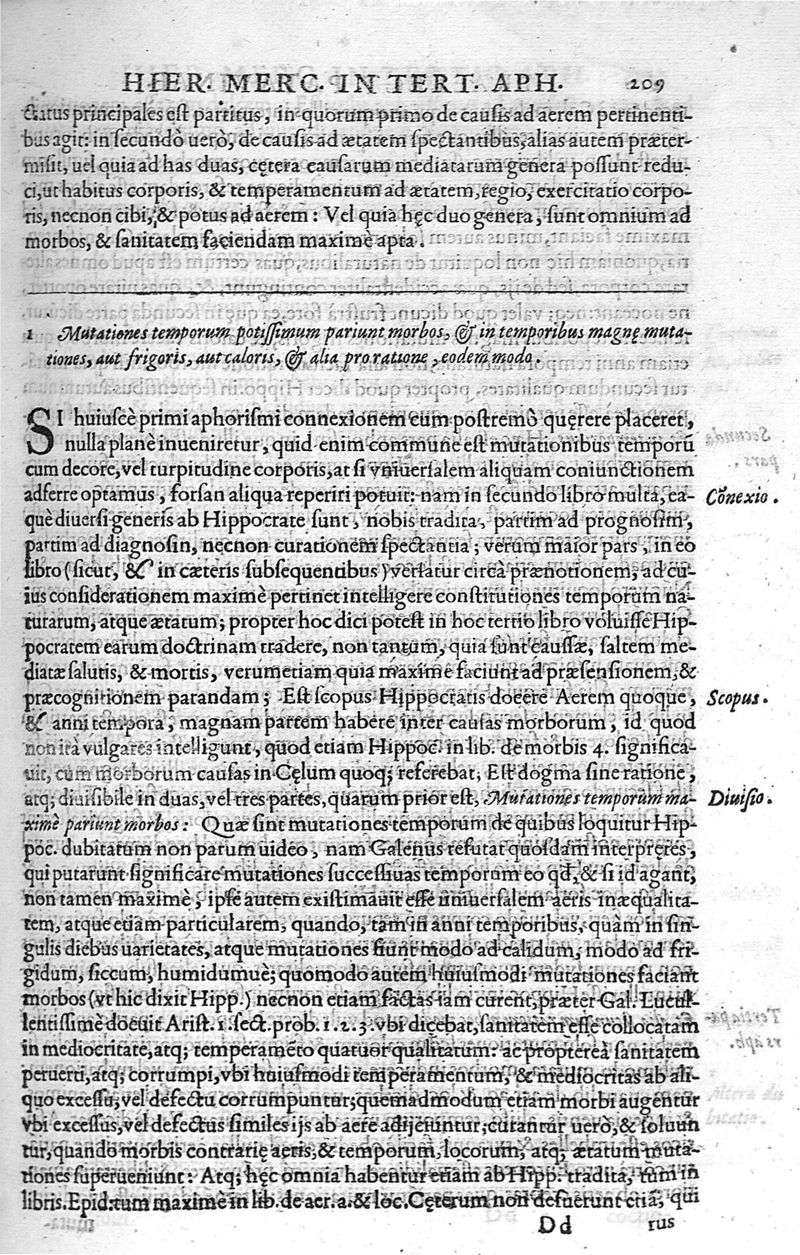 HIER. MERC. IN TERT. APH. 209
ctatus principales est partitus, in quorum primo de causis ad aerem pertinenti-
bus agit: in secundò uerò, de causis ad ætatem spectantibus, alias autem præter-
misit, uel quia ad has duas, cętera causarum mediatarum genera possunt redu-
ci, ut habitus corporis, & temperamentum ad ætatem, regio, exercitatio corpo-
ris, necnon cibi, & potus ad aerem: Vel quia hęc duo genera, sunt omnium ad
morbos, & sanitatem faciendam maximè apta.
1 Mutationes temporum potissimum pariunt morbos, & in temporibus magnę muta-
tiones, aut frigoris, aut caloris, & alia pro ratione, eodem modo.
SI huiuscè primi aphorismi connexionem cum postremò quęrere placeret,
nulla planè inueniretur, quid enim commune est mutationibus temporũ
cum decore, vel turpitudine corporis, at si vniuersalem aliquam coniunctionem
adferre optamus, forsan aliqua reperiri potuit: nam in secundo libro multa, ea-
Cõnexio.
què diuersi generis ab Hippocrate sunt, nobis tradita, partim ad prognosim,
partim ad diagnosin, necnon curationem spectantia; verum maior pars, in eo
libro (sicut, & in cæteris subsequentibus) versatur circa prænotionem, ad cu-
ius considerationem maximè pertinet intelligere constitutiones temporum na-
turarum, atque ætatum; propter hoc dici potest in hoc tertio libro voluisse Hip-
pocratem earum doctrinam tradere, non tantum, quia sunt caussæ, saltem me-
diatæ salutis, & mortis, verumetiam quia maxime faciunt ad præsensionem, &
præcognitionem parandam; Est scopus Hippocratis docere Aerem quoque,
Scopus.
& anni tempora, magnam partem habere inter causas morborum, id quod
non ità vulgares intelligunt, quod etiam Hippoc. in lib. de morbis 4. significa-
uit, cum morborum causas in Cęlum quoq; referebat; Est dogma sine ratione,
atq; diuisibile in duas, vel tres partes, quarum prior est, Mutationes temporum ma-
Diuisio.
ximè pariunt morbos: Quæ sint mutationes temporum de quibus loquitur Hip-
poc. dubitatum non parum uideo, nam Galenus refutat quosdam interpretes,
qui putarunt significare mutationes successiuas temporum eo qđ, & si id agant,
non tamen maximè; ipse autem existimauit esse uniuersalem aeris inæqualita-
tem, atque etiam particularem, quando, tam in anni temporibus, quàm in sin-
gulis diebus uarietates, atque mutationes fiunt modo ad calidum, modo ad fri-
gidum, siccum, humidumuè; quomodo autem huiusmodi mutationes faciant
morbos (vt hic dixit Hipp.) necnon etiam factas iam curent, præter Gal. Lucul-
lentissimè docuit Arist. 1. sect. prob. 1. 2. 3. vbi dicebat, sanitatem esse collocatam
in mediocritate, atq; temperamẽto quatuor qualitatum: ac propterea sanitatem
peruerti, atq; corrumpi, vbi huiusmodi temperamentum, & mediocritas ab ali-
quo excessu, vel defectu corrumpuntur; quemadmodum etiam morbi augentur
vbi excessus, vel defectus similes ijs ab aere adijciuntur; curantur uerò, & soluun
tur, quando morbis contrarię aeris, & temporum, locorum, atq; ætatum muta-
tiones superueniunt: Atq; hęc omnia habentur etiam ab Hipp. tradita, tum in
libris. Epid: tum maximè in lib. de aer. a. & loc. Cęterum non defuerunt etiã, qui
Dd rus